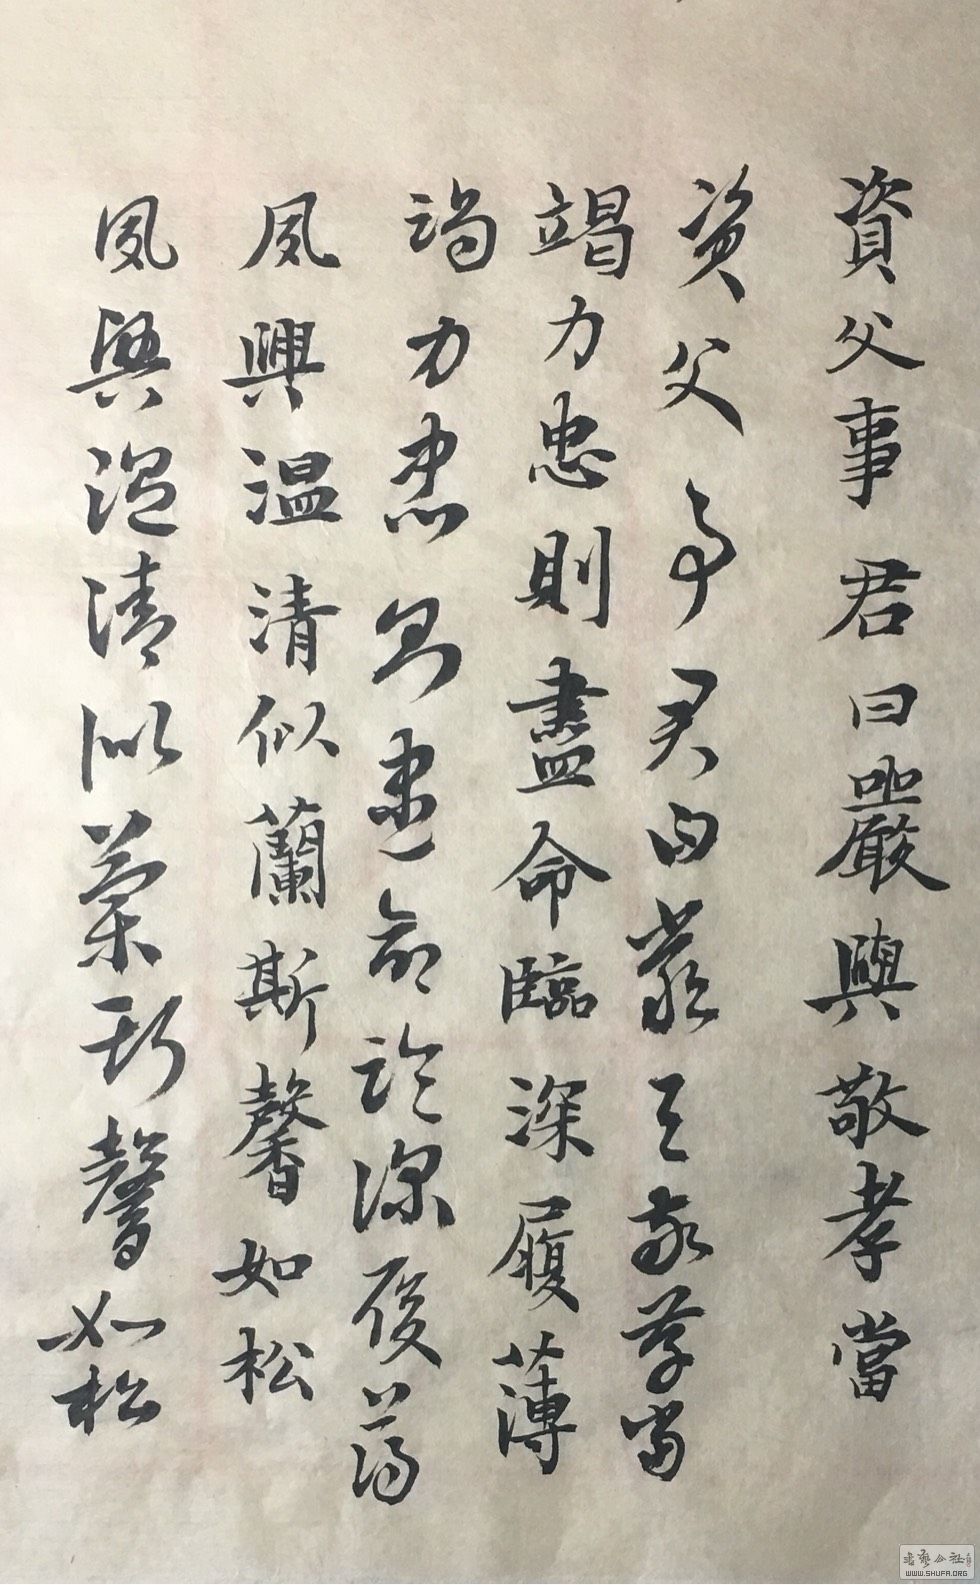 資父事君曰嚴與敬孝當
資父事君曰嚴與敬孝當
竭力忠則盡命臨深履薄
竭力忠則盡命臨深履薄
夙興温清似蘭斯馨如松
夙興温清似蘭斯馨如松
書藝公社
WWW.SHUFA.ORG